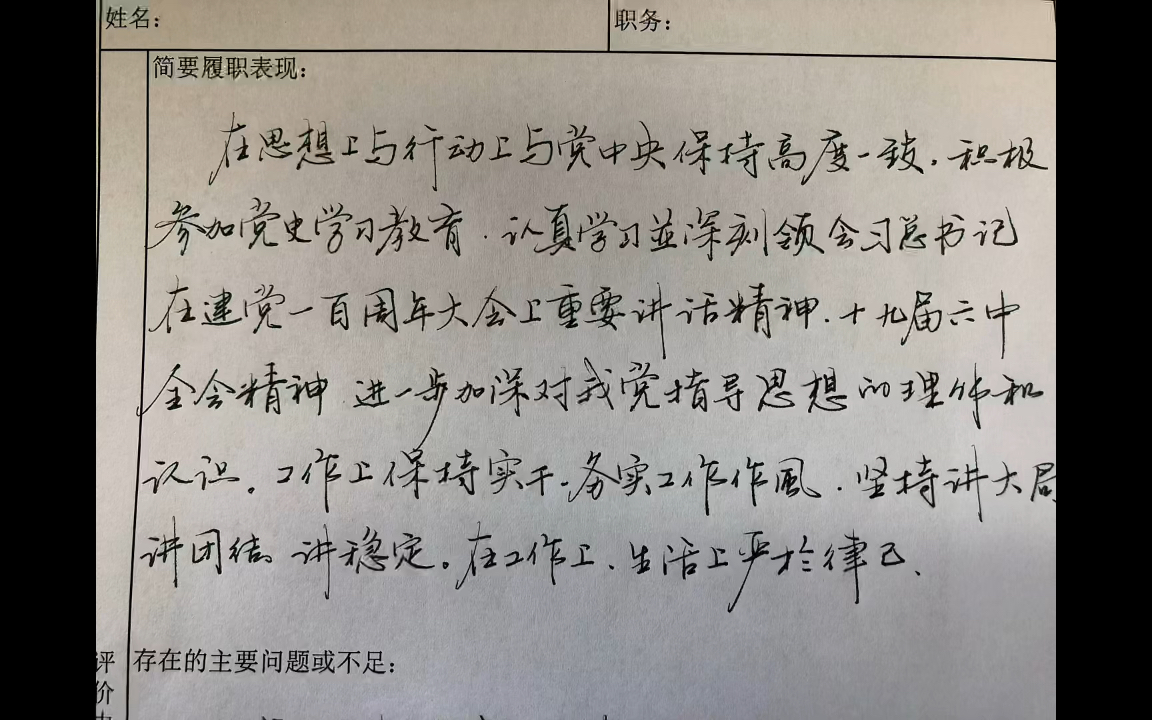 姓名： 职务：
简要履职表现：
在思想上与行动上与党中央保持高度一致，积极
参加党史学习教育，认真学习並深刻领会习总书记
在建党一百周年大会上重要讲话精神，十九届六中
全会精神 进一步加深对我党指导思想的理解和
认识。工作上保持实干、务实工作作風，坚持讲大局
讲团结 讲稳定。在工作上、生活上严於律己、
评 存在的主要问题或不足：
价